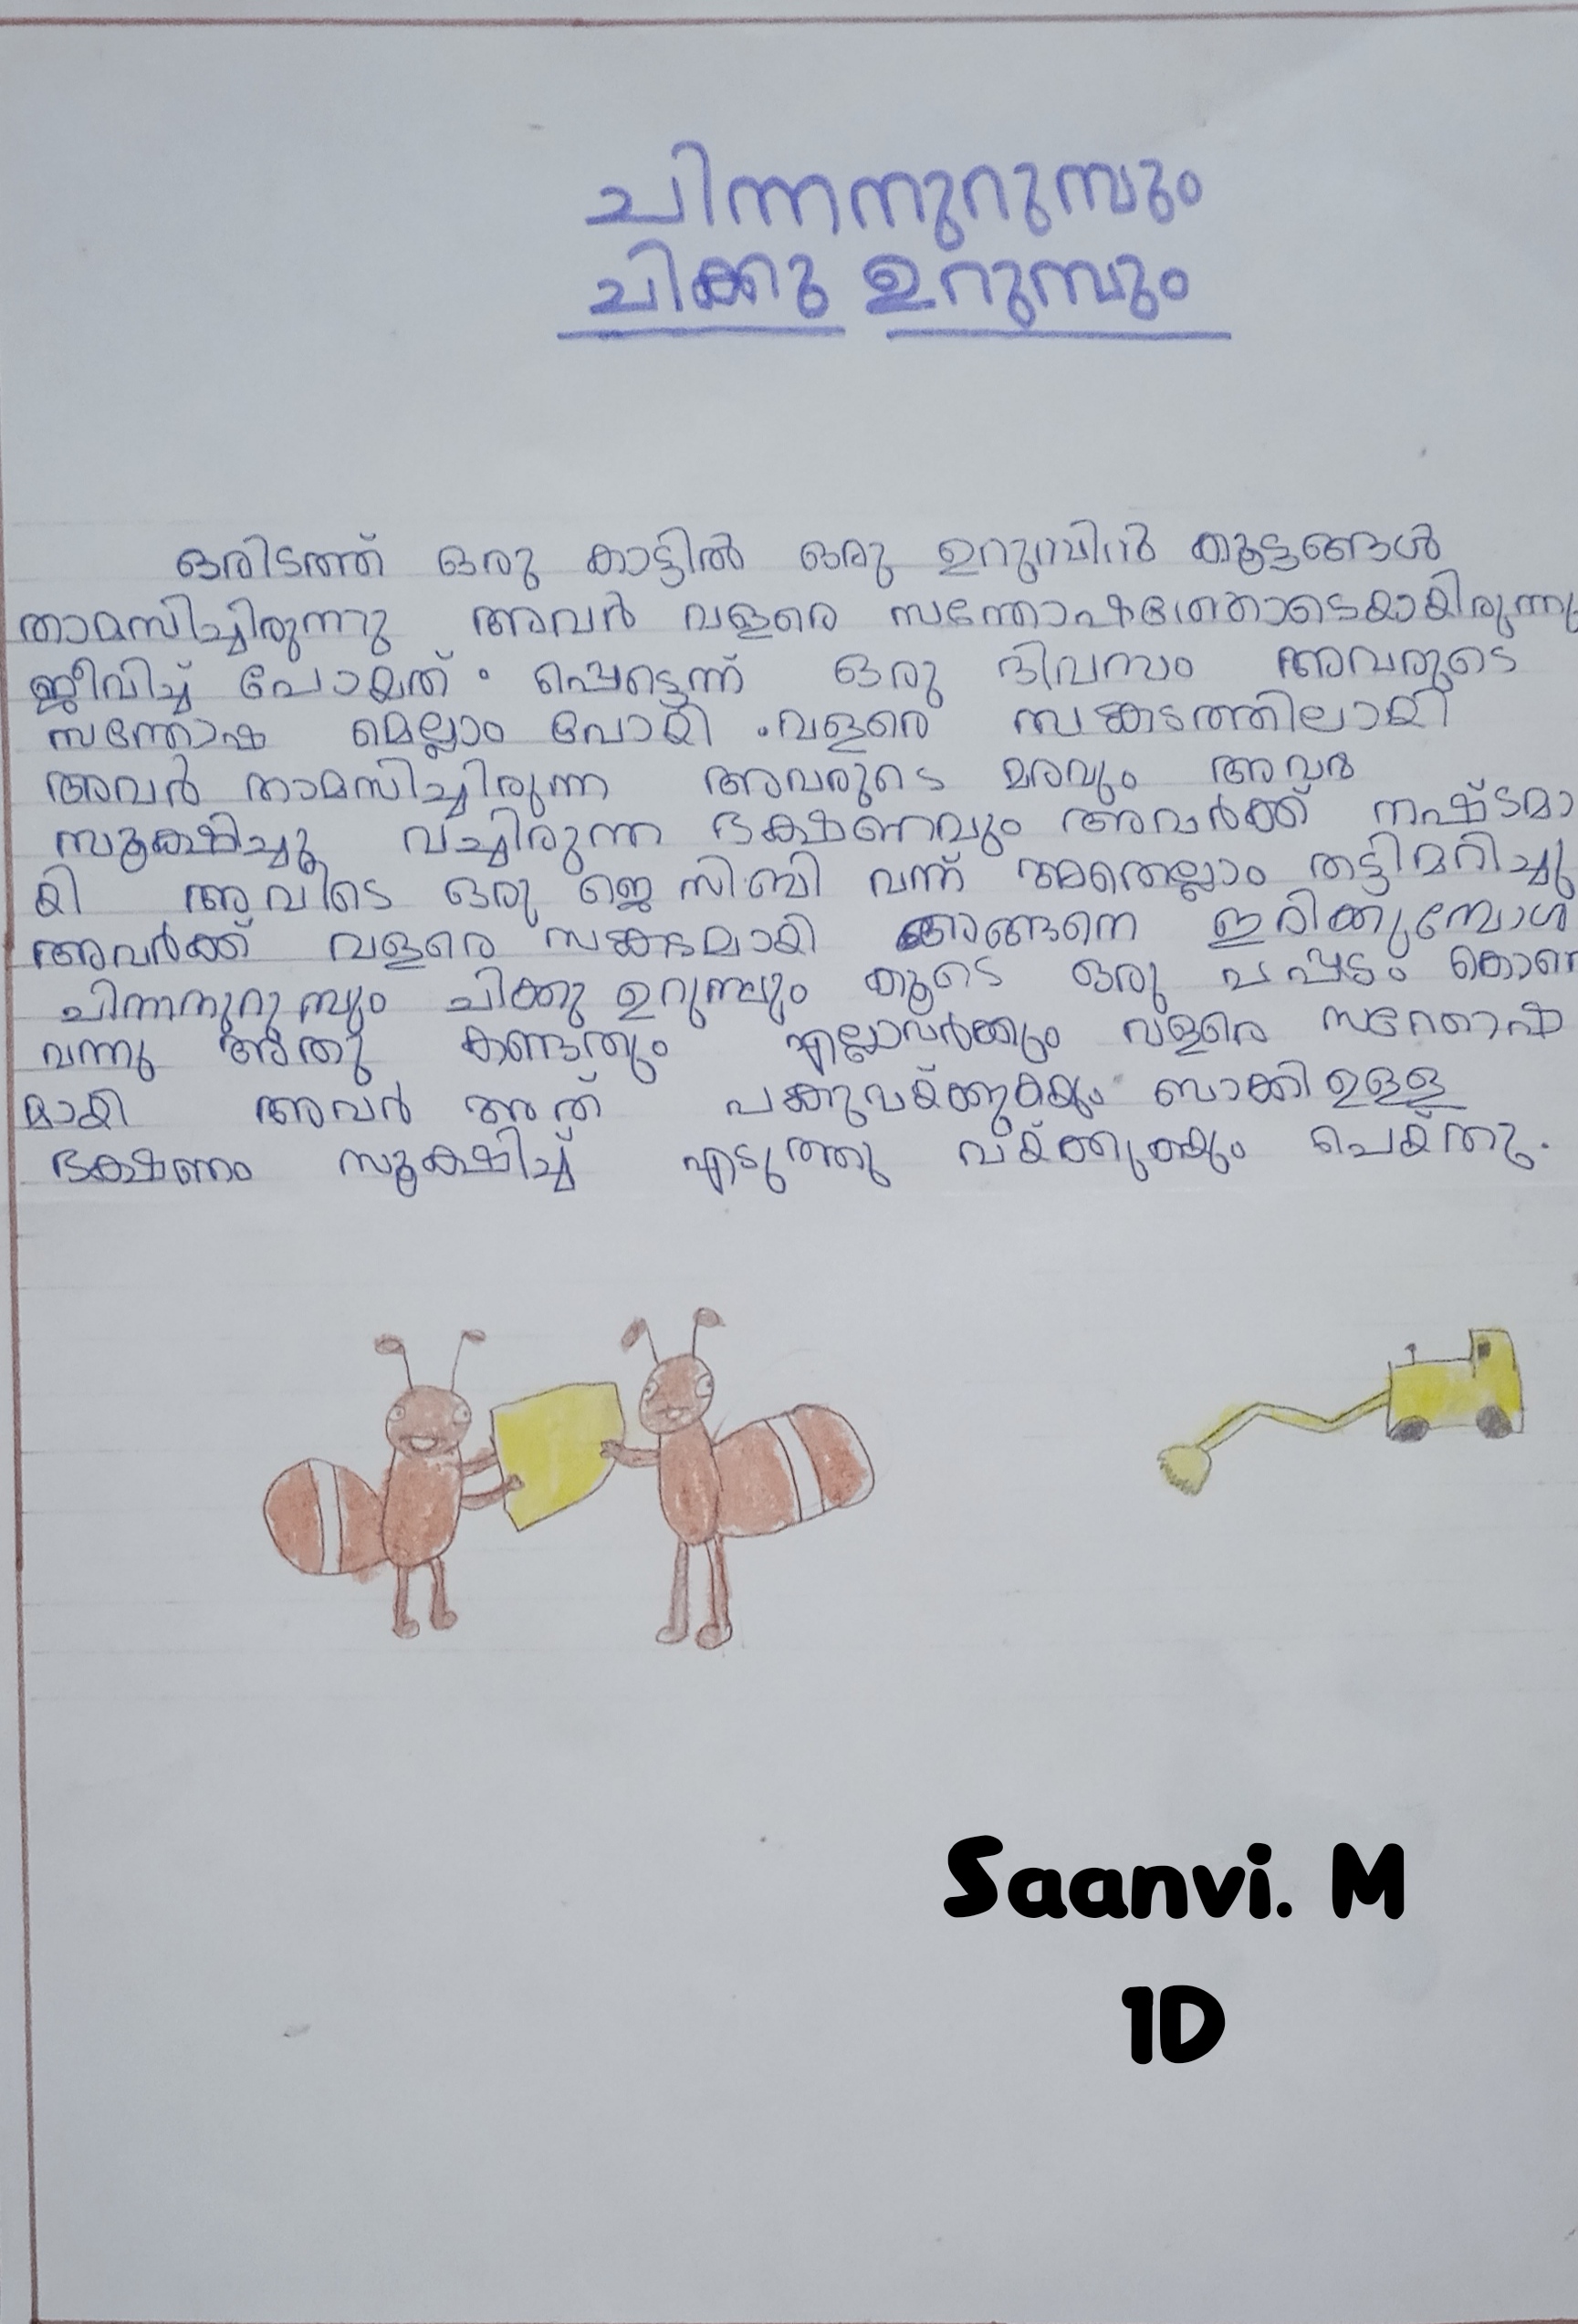 ചിന്നനുറുമ്പും
ചിക്കു ഉറുമ്പും
ഒരിടത്ത് ഒരു കാട്ടിൽ ഒരു ഉറുമ്പിൻ കൂട്ടങ്ങൾ
താമസിച്ചിരുന്നു അവൻ വളരെ സന്തോഷത്തോടെയായിരുന്നു
ജീവിച്ച് പോയത്. പ്പെട്ടെന്ന് ഒരു ദിവസം അവരുടെ
സന്തോഷ മെല്ലാം പോയി .വളരെ സങ്കടത്തിലായി
അവർ താമസിച്ചിരുന്ന അവരുടെ മരവും അവർ
സൂക്ഷിച്ചു വച്ചിരുന്ന ഭക്ഷണവും അവർക്ക് നഷ്ടമാ
യി അവിടെ ഒരു ജെ സി.ബി വന്ന് അതെല്ലാം തട്ടിമറിച്ചു
അവർക്ക് വളരെ സങ്കടമായി അങ്ങനെ ഇരിക്കുമ്പോൾ
ചിന്നനുറുമ്പും ചിക്കു ഉറുമ്പും കൂടെ ഒരു പപ്പടം കൊണ്
വന്നു അതു കണ്ടതും എല്ലാവർക്കും വളരെ സന്തോഷ
മായി അവർ അത് പങ്കുവയ്ക്കുകയും ബാക്കി ഉള്ള
ഭക്ഷണം സൂക്ഷിച്ച് എടുത്തു വയ്ക്കുകയും ചെയ്തു.
Saanvi. M
1D